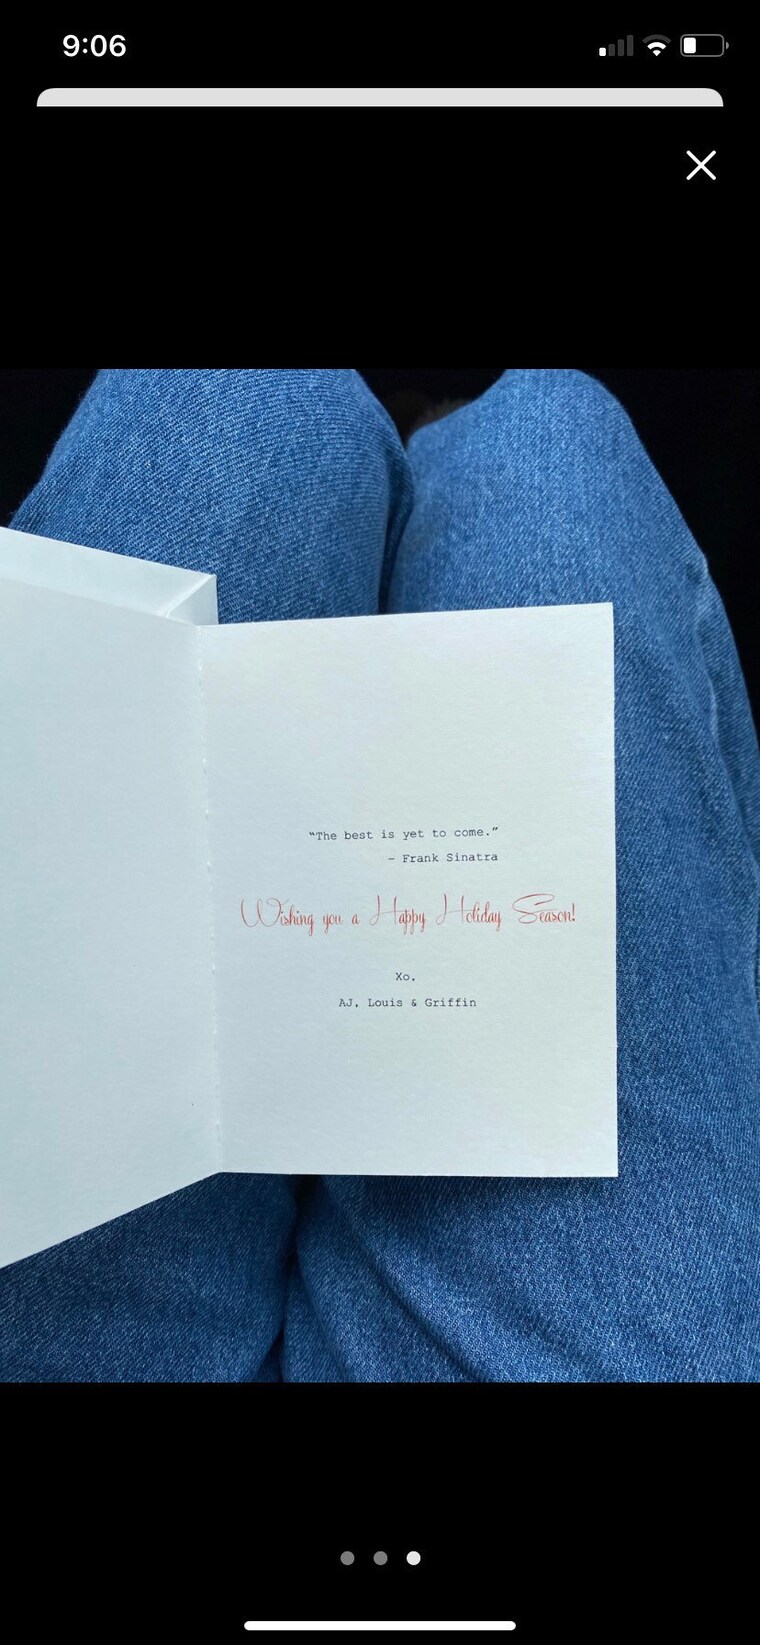 9:06
“The best is yet to come.”
– Frank Sinatra
Wishing you a Happy Holiday Season!
Xo,
AJ, Louis & Griffin